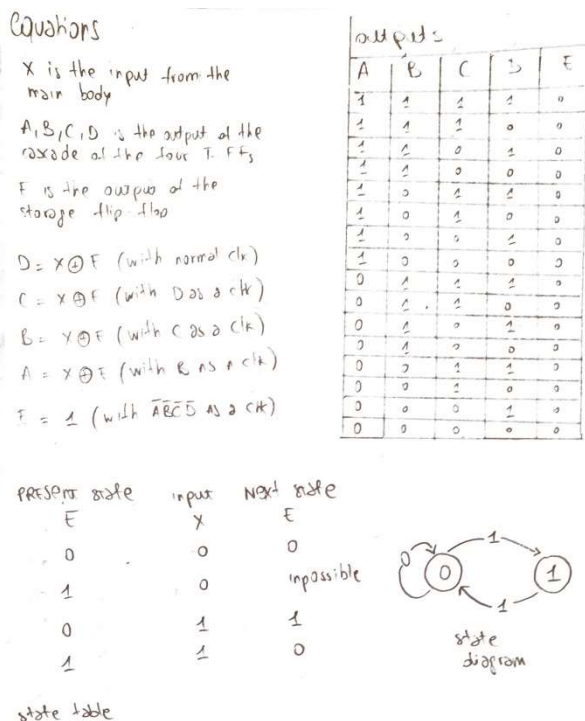 Equations
X is the input from the
main body
A, B, C, D is the output of the
cascade of the four T. FFs
F is the output of the
storage flip flop
D = X ⊕ F (with normal clk)
C = X ⊕ F (with D as a clk)
B = X ⊕ F (with C as a clk)
A = X ⊕ E (with B as a clk)
F = 1 (with A̅B̅C̅D̅ as a clk)
outputs
A B C D E
1 1 1 1 0
1 1 1 0 0
1 1 0 1 0
1 1 0 0 0
1 0 1 1 0
1 0 1 0 0
1 0 0 1 0
1 0 0 0 0
0 1 1 1 0
0 1 1 0 0
0 1 0 1 0
0 1 0 0 0
0 0 1 1 0
0 0 1 0 0
0 0 0 1 0
0 0 0 0 0
PRESENT state input Next state
E X E
0 0 0
1 0 inpossible
0 1 1
1 1 0
state table
0 0 1 1
1
state
diagram